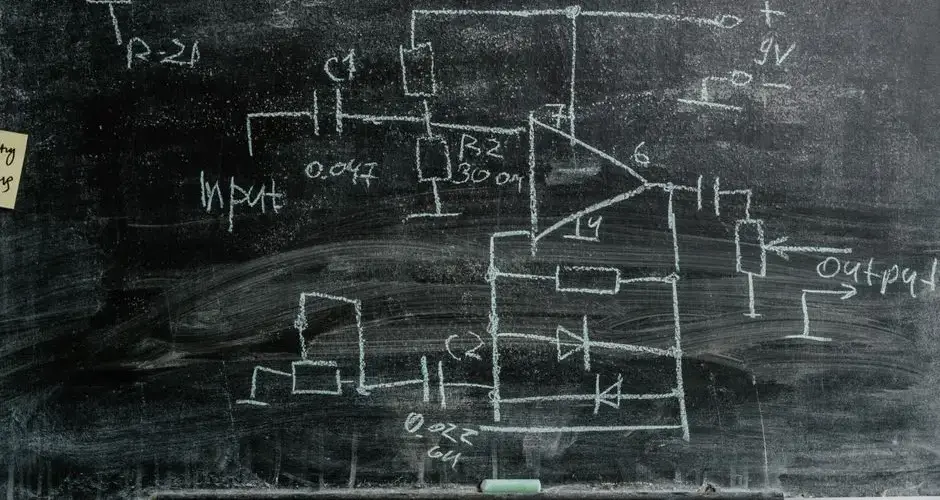 R-21
C1
+
9V
-
7
6
R2
0.047
Input
4
output
C2
0.022